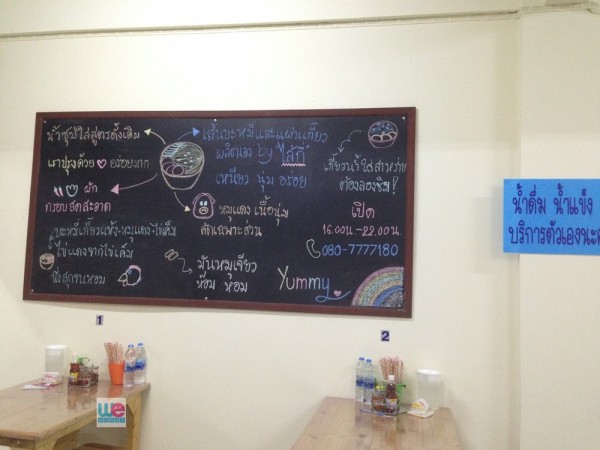 น้ำซุปใสสูตรดั้งเดิม
เราปรุงด้วย ♡ อร่อยมาก
ผัก
กรอบสดสะอาด
บะหมี่เกี๊ยวแห้ง-หมูแดง-ไข่เค็ม
ไข่แดงจากไข่เค็ม
เส้นบะหมี่และแผ่นเกี๊ยว
ผลิตเอง by
เหนียว นุ่ม อร่อย
หมูแดง เนื้อนุ่ม
คัดเฉพาะส่วน
มันหมูเจียว
หอม หอม
เกี๊ยวน้ำใส่สาหร่าย
ต้องลองชิม!
เปิด
16.00น.-22.00น.
080-7777180
Yummy
น้ำดื่ม น้ำแข็ง
บริการตัวเองนะ
1
2
we